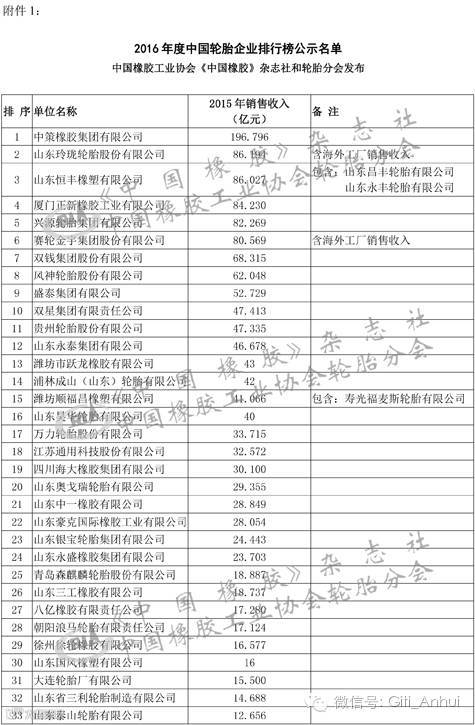 附件1：
2016年度中国轮胎企业排行榜公示名单
中国橡胶工业协会《中国橡胶》杂志社和轮胎分会发布
排 序 单位名称 2015年销售收入（亿元） 备 注
1 中策橡胶集团有限公司 196.796
2 山东玲珑轮胎股份有限公司 86.194 含海外工厂销售收入
3 山东恒丰橡塑有限公司 86.027 包含：山东昌丰轮胎有限公司
山东永丰轮胎有限公司
4 厦门正新橡胶工业有限公司 84.230
5 兴源轮胎集团有限公司 82.269
6 赛轮金宇集团股份有限公司 80.569 含海外工厂销售收入
7 双钱集团股份有限公司 68.315
8 风神轮胎股份有限公司 62.048
9 盛泰集团有限公司 52.729
10 双星集团有限责任公司 47.413
11 贵州轮胎股份有限公司 47.335
12 山东永泰集团有限公司 46.678
13 潍坊市跃龙橡胶有限公司 43
14 浦林成山（山东）轮胎有限公司 42
15 潍坊顺福昌橡塑有限公司 41.066 包含：寿光福麦斯轮胎有限公司
16 山东昊华轮胎有限公司 40
17 万力轮胎股份有限公司 33.715
18 江苏通用科技股份有限公司 32.572
19 四川海大橡胶集团有限公司 30.100
20 山东奥戈瑞轮胎有限公司 29.355
21 山东中一橡胶有限公司 28.849
22 山东豪克国际橡胶工业有限公司 28.054
23 山东银宝轮胎集团有限公司 24.443
24 山东永盛橡胶集团有限公司 23.703
25 青岛森麒麟轮胎股份有限公司 18.887
26 山东三工橡胶有限公司 18.737
27 八亿橡胶有限责任公司 17.280
28 朝阳浪马轮胎有限责任公司 17.124
29 徐州徐轮橡胶有限公司 16.577
30 山东国风橡塑有限公司 16
31 大连轮胎厂有限公司 15.500
32 山东省三利轮胎制造有限公司 14.688
33 山东泰山轮胎有限公司 12.656
《中国橡胶》杂志社
中国橡胶工业协会轮胎分会
《中国橡胶》杂志社
中国橡胶工业协会轮胎分会
《中国橡胶》杂志社
中国橡胶工业协会轮胎分会
微信号: Giti_Anhui